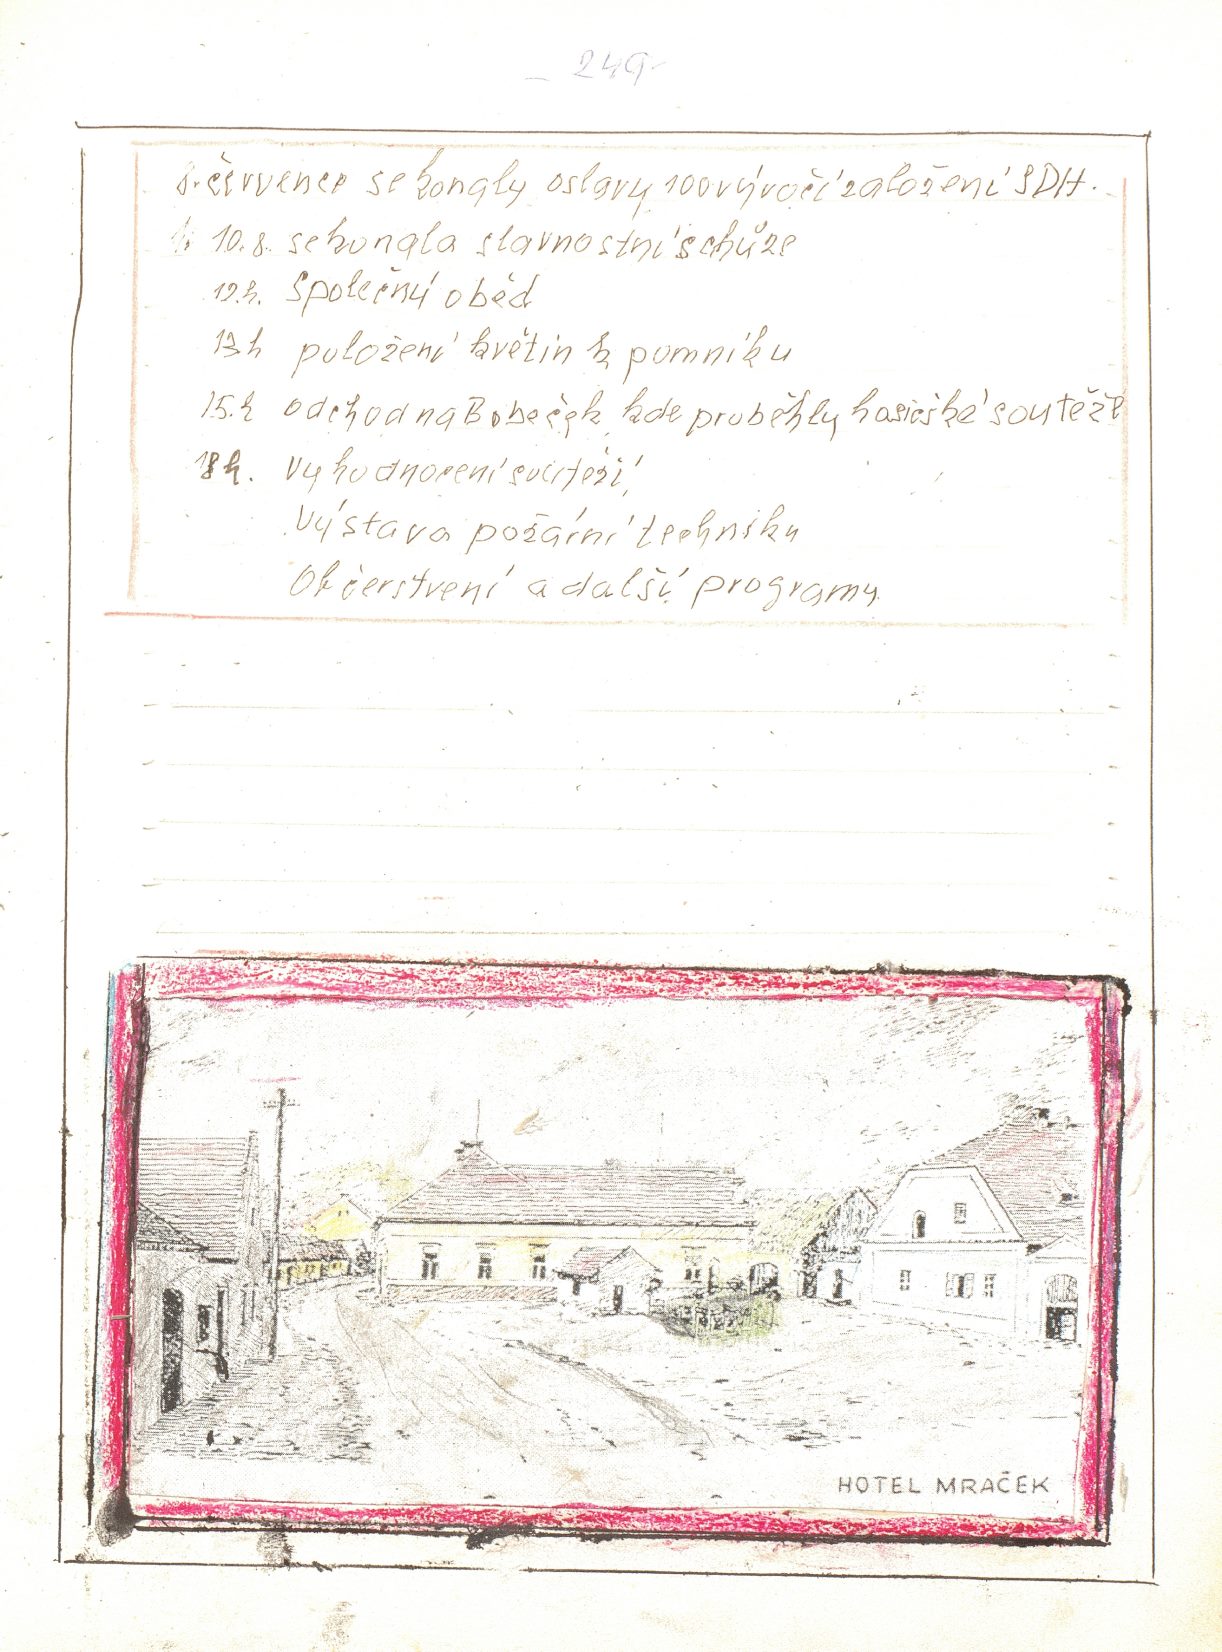 249
8. července se konaly oslavy 100 výročí založení SDH.
10.8. se konala slavnostní schůze
12.h. Společný oběd
13h položení květin k pomníku
15.h odchod na Bobeček kde proběhly hasičské soutěže
18h. Vyhodnocení soutěží
Výstava požární techniky
Občerstvení a další programy.
HOTEL MRAČEK